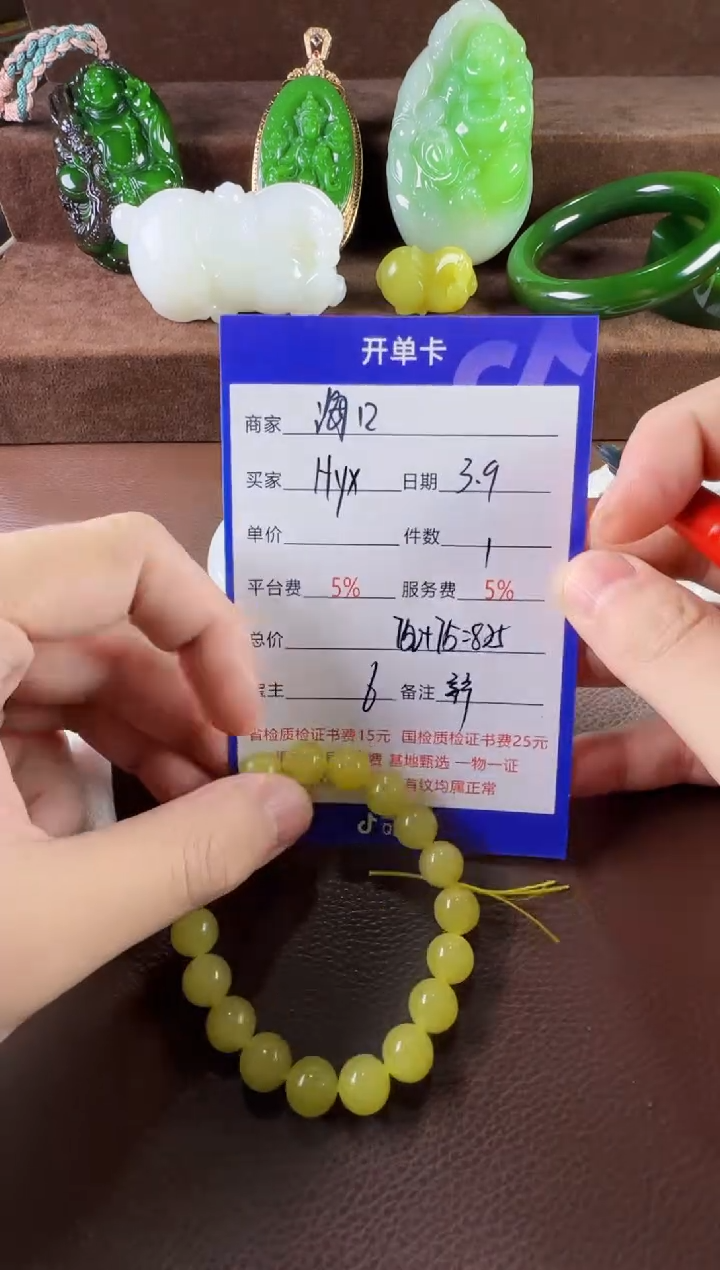 开单卡
商家 海口
买家 Hyx 日期 3.9
单价 件数 1
平台费 5% 服务费 5%
总价 750+75=825
主 6 备注
省检质检证书费15元 国检质检证书费25元
费 基地甄选 一物一证
有纹均属正常